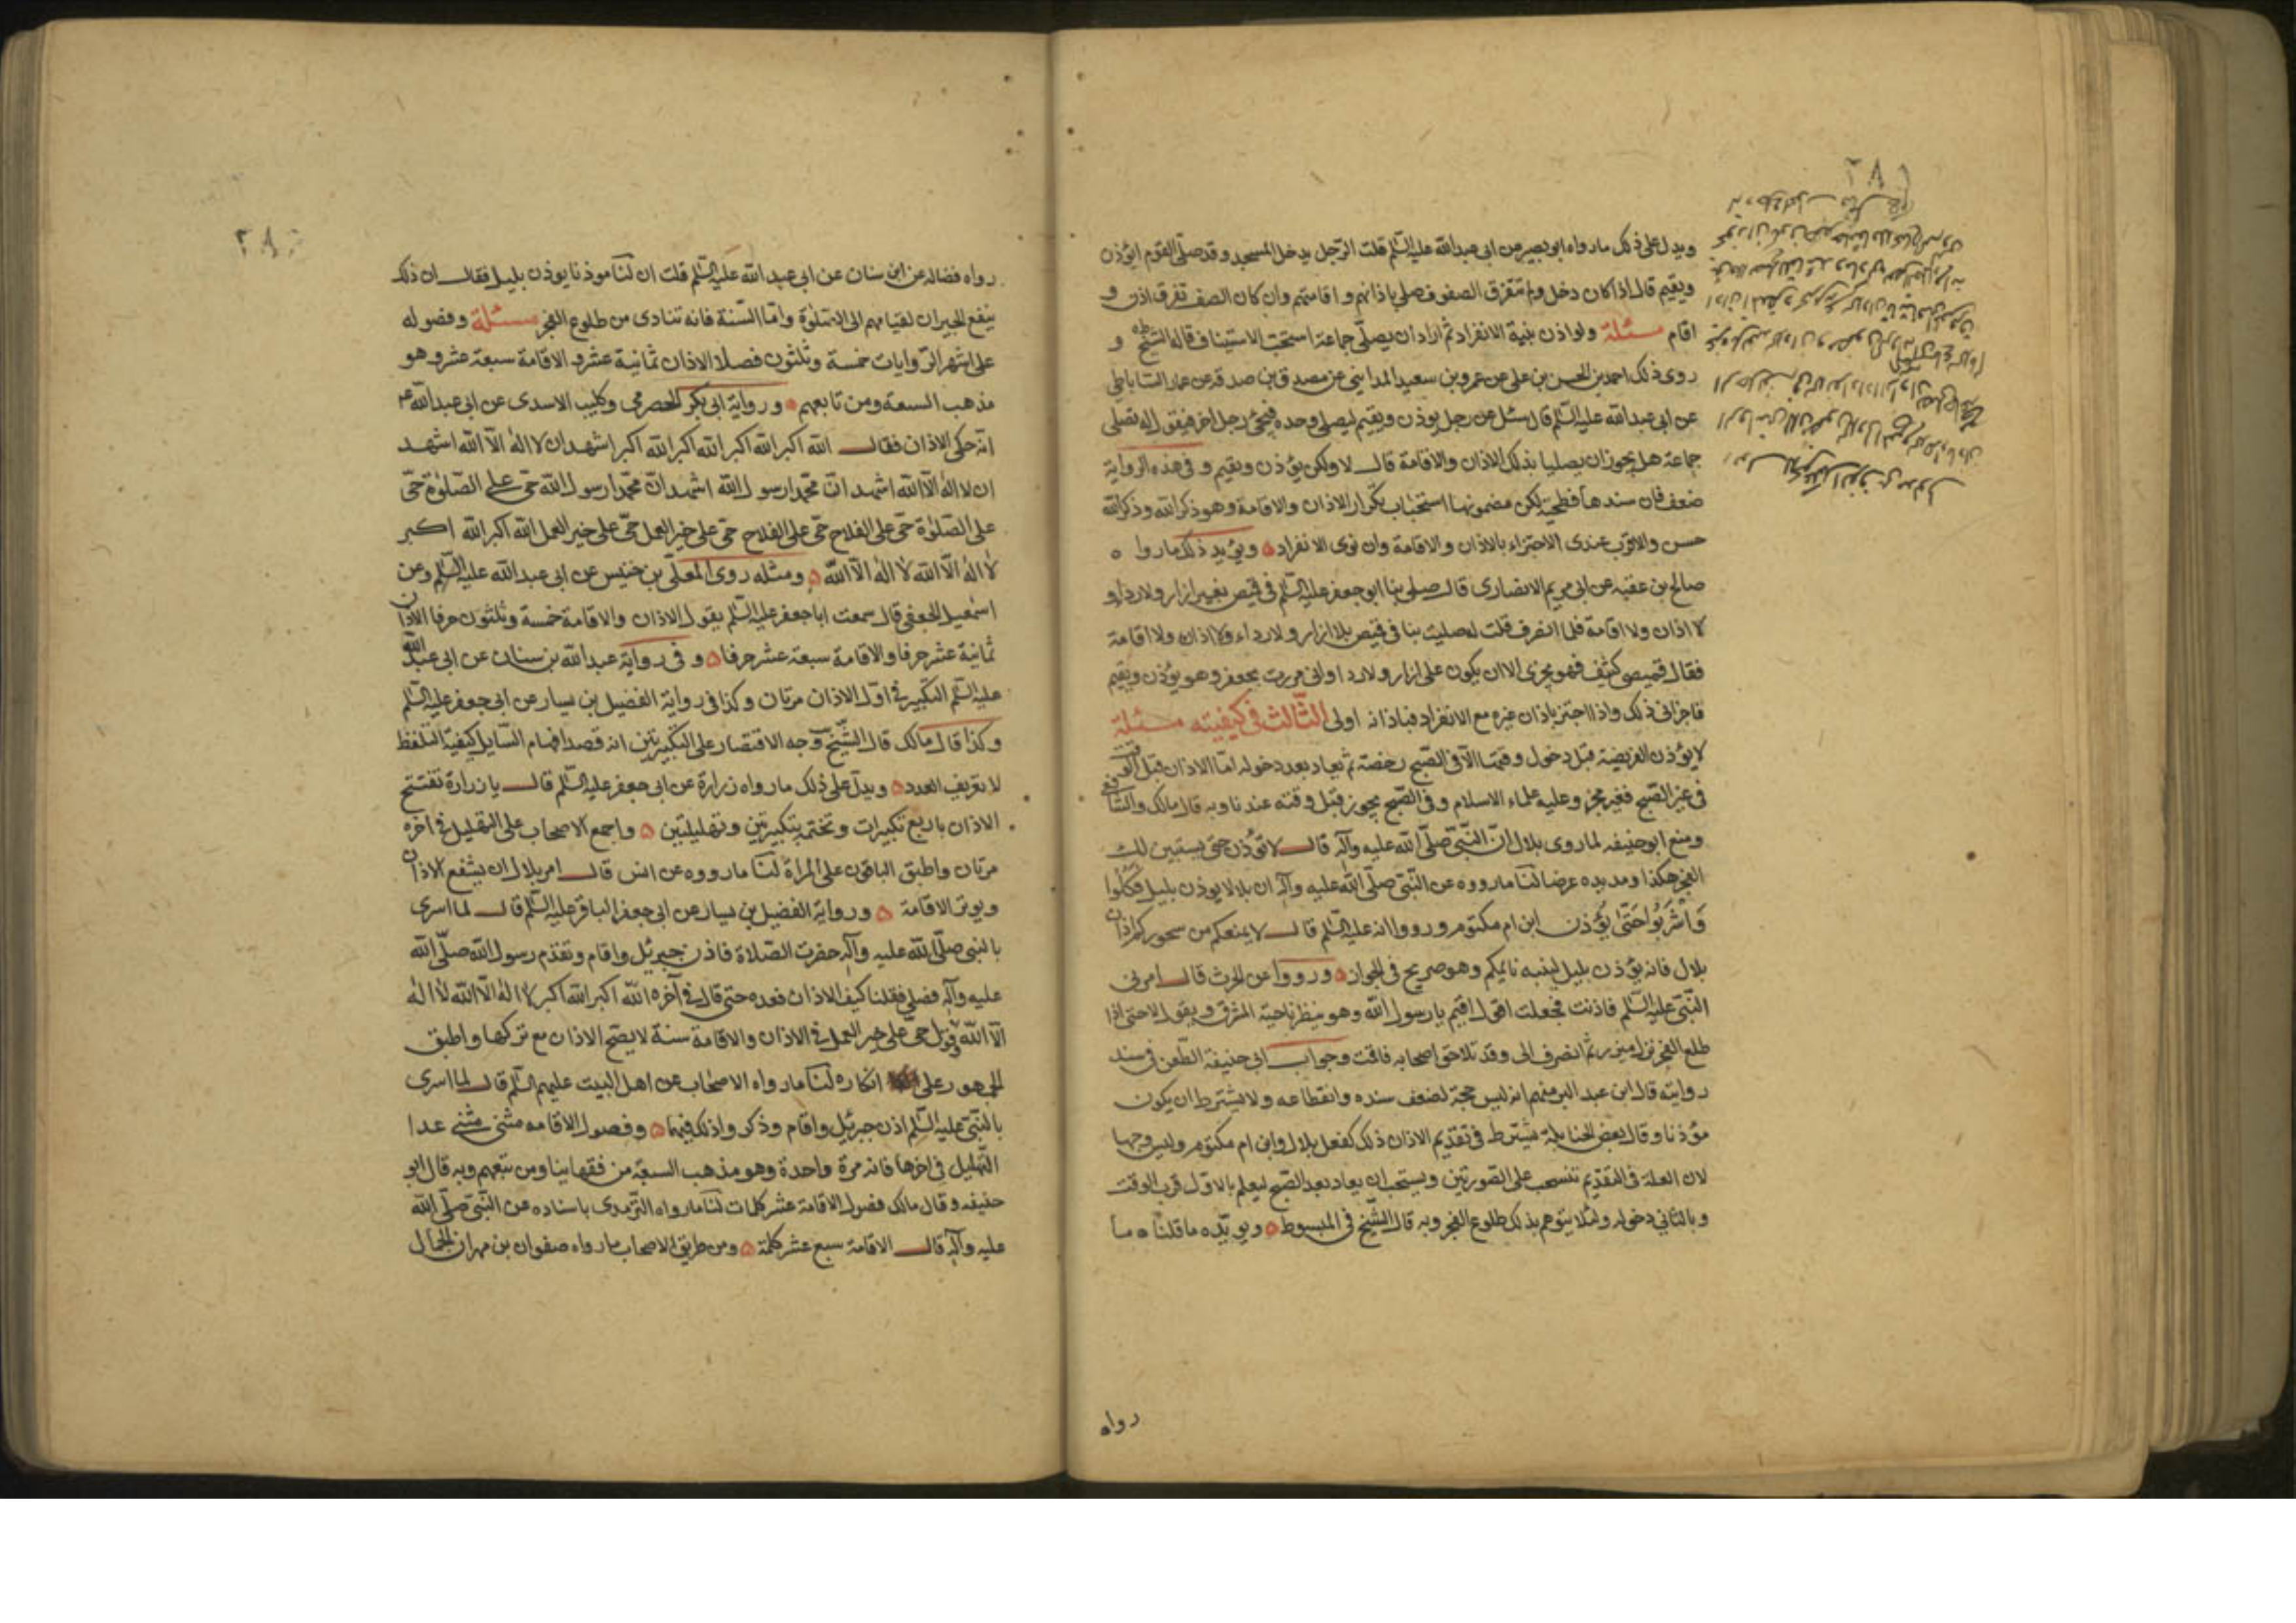 ويدل على ذلك مارواه ابو بصير عن ابى عبدالله عليه السلم قلت الرجل يدخل المسجد وقد صلى القوم ايؤذن
ويقيم قال اذا كان دخل ولم تتفرق الصفوف صلى باذانهم واقامتهم وان كان الصف تفرق اذن و
اقام مسئلة ولو اذن بنية الانفراد ثم اراد ان يصلى جماعة استحب الاستيناف قاله الشيخ و
روى ذلك احمد بن الحسن بن على عن عمرو بن سعيد المدايني عن مصدق بن صدقه عن عمار الساباطى
عن ابى عبدالله عليه السلم قال سئل عن رجل يوذن ويقيم ليصلى وحده فيجئ رجل اخر فيقول له نصلى
جماعة هل يجوز ان يصليا بذلك الاذان والاقامة قال لا ولكن يؤذن ويقيم و فى هذه الرواية
ضعف فان سندها فطحية لكن مضمونها استحباب تكرار الاذان والاقامة وهو ذكر الله وذكر الله
حسن والاقرب عندى الاجتزاء بالاذان والاقامة وان نوى الانفراد ويؤيد ذلك ماروا ه
صالح بن عقبه عن ابى مريم الانصارى قال صلى بنا ابو جعفر عليه السلم فى قميص بغير ازار ولا رداء و
لا اذان ولا اقامة فلما انصرف قلت له صليت بنا فى قميص بلا ازار ولا رداء ولا اذان ولا اقامة
فقال قميصى كثيف فهو يجزى الا ان يكون على ازار ولا ردا وانى مررت بجعفر وهو يؤذن ويقيم
فاجزانى ذلك واذا اجتز باذان غيره مع الانفراد فباذانه اولى الثالث فى كيفيته مسئلة
لا يؤذن الفريضة قبل دخول وقتها الا فى الصبح رخصة ثم يعاد بعد دخوله اما الاذان قبل الوقت
فى غير الصبح فغير مجز وعليه علماء الاسلام وفى الصبح يجوز قبل وقته عندنا وبه قال مالك والشافعى
ومنع ابو حنيفه لما روى بلال ان النبى صلى الله عليه وآله قال لا تؤذن حتى يستبين لك
الفجر هكذا ومد يده عرضا لنا مارووه عن النبى صلى الله عليه وآله ان بلالا يوذن بليل فكلوا
واشربوا حتى يؤذن ابن ام مكتوم ورووا انه عليه السلم قال لا يمنعكم من سحوركم اذان
بلال فانه يؤذن بليل لينبه نائمكم وهو صريح فى الجواز ورووا عن الحرث قال امرنى
النبى عليه السلم فاذنت فجعلت اقول اقيم يا رسول الله وهو ينظر ناحية المشرق ويقول لا حتى اذا
طلع الفجر نزل فبرز ثم انصرف الى وقد تلاحق اصحابه فاقت وجواب ابى حنيفة الطعن فى سند
روايته قال ابن عبد البر منهم انه ليس حجة لضعف سنده وانقطاعه ولا يشترط ان يكون
مؤذنا وقال بعض الحنابلة يشترط فى تقديم الاذان ذلك كفعل بلال وابن ام مكتوم وليس وجها
لان العلة فى التقديم تنسحب على الصورتين ويستحب ان يعاد بعد الصبح ليعلم بالاول قرب الوقت
وبالثانى دخوله ولئلا يتوهم بذلك طلوع الفجر وبه قال الشيخ فى المبسوط ويويده ما قلناه ما
رواه
رواه فضاله عن ابن سنان عن ابى عبدالله عليه السلم قلت ان لنا موذنا يوذن بليل فقال ان ذلك
ينفع الجيران لقيامهم الى الصلوة واما السنة فانه تنادى من طلوع الفجر مسئلة وفصوله
على اشهر الروايات خمسة وثلثون فصلا الاذان ثمانية عشر و الاقامة سبعة عشر وهو
مذهب السبعة ومن تابعهم ورواية ابى بكر الحضرمى وكليب الاسدى عن ابى عبدالله عم
انه حكى الاذان فقال الله اكبر الله اكبر الله اكبر الله اكبر اشهد ان لا اله الا الله اشهد
ان لا اله الا الله اشهد ان محمدا رسول الله اشهد ان محمدا رسول الله حى على الصلوة حى
على الصلوة حى على الفلاح حى على الفلاح حى على خير العمل حى على خير العمل الله اكبر الله اكبر
لا اله الا الله لا اله الا الله ومثله روى المعلى بن خنيس عن ابى عبدالله عليه السلم وعن
اسمعيل الجعفى قال سمعت ابا جعفر عليه السلم يقول الاذان والاقامة خمسة وثلثون حرفا الاذان
ثمانية عشر حرفا والاقامة سبعة عشر حرفا و فى رواية عبدالله بن سنان عن ابى عبدالله
عليه السلم التكبير فى اول الاذان مرتان وكذا فى رواية الفضيل بن يسار عن ابى جعفر عليه السلم
وكذا قال مالك قال الشيخ وجه الاقتصار على التكبيرتين انه قصد افهام السايل كيفية التلفظ
لا تعريف العدد ويدل على ذلك مارواه زرارة عن ابى جعفر عليه السلم قال يا زرارة تفتتح
الاذان باربع تكبيرات وتختمه بتكبيرتين وتهليلتين واجمع الاصحاب على التهليل فى آخره
مرتان واطبق الباقون على المراة لنا مارووه عن انس قال امر بلال ان يشفع الاذان
ويوتر الاقامة ورواية الفضيل بن يسار عن ابى جعفر الباقر عليه السلم قال لما اسرى
بالنبى صلى الله عليه وآله حضرت الصلاة فاذن جبرئيل واقام وتقدم رسول الله صلى الله
عليه وآله فصلى فقلنا كيف الاذان فعده حتى قال فى آخره الله اكبر الله اكبر لا اله الا الله لا اله
الا الله وقول حى على خير العمل فى الاذان والاقامة سنة لا يصح الاذان مع تركها واطبق
الجمهور على انكاره لنا مارواه الاصحاب عن اهل البيت عليهم السلم قال لما اسرى
بالنبى عليه السلم اذن جبرئيل واقام وذكروا ذلك فيهما وفصول الاقامه مثنى مثنى عدا
التهليل فى اخرها فانه مرة واحدة وهو مذهب السبعة من فقهاينا ومن تبعهم وبه قال ابو
حنيفه وقال مالك فصول الاقامة عشر كلمات لنا مارواه الترمدى باسناده عن النبى صلى الله
عليه وآله قال الاقامة سبع عشر كلمة ومن طريق الاصحاب مارواه صفوان بن مهران الجمال